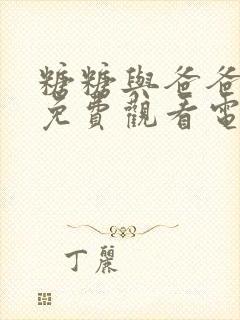 糖糖與爸爸
免費觀看電
丁麗